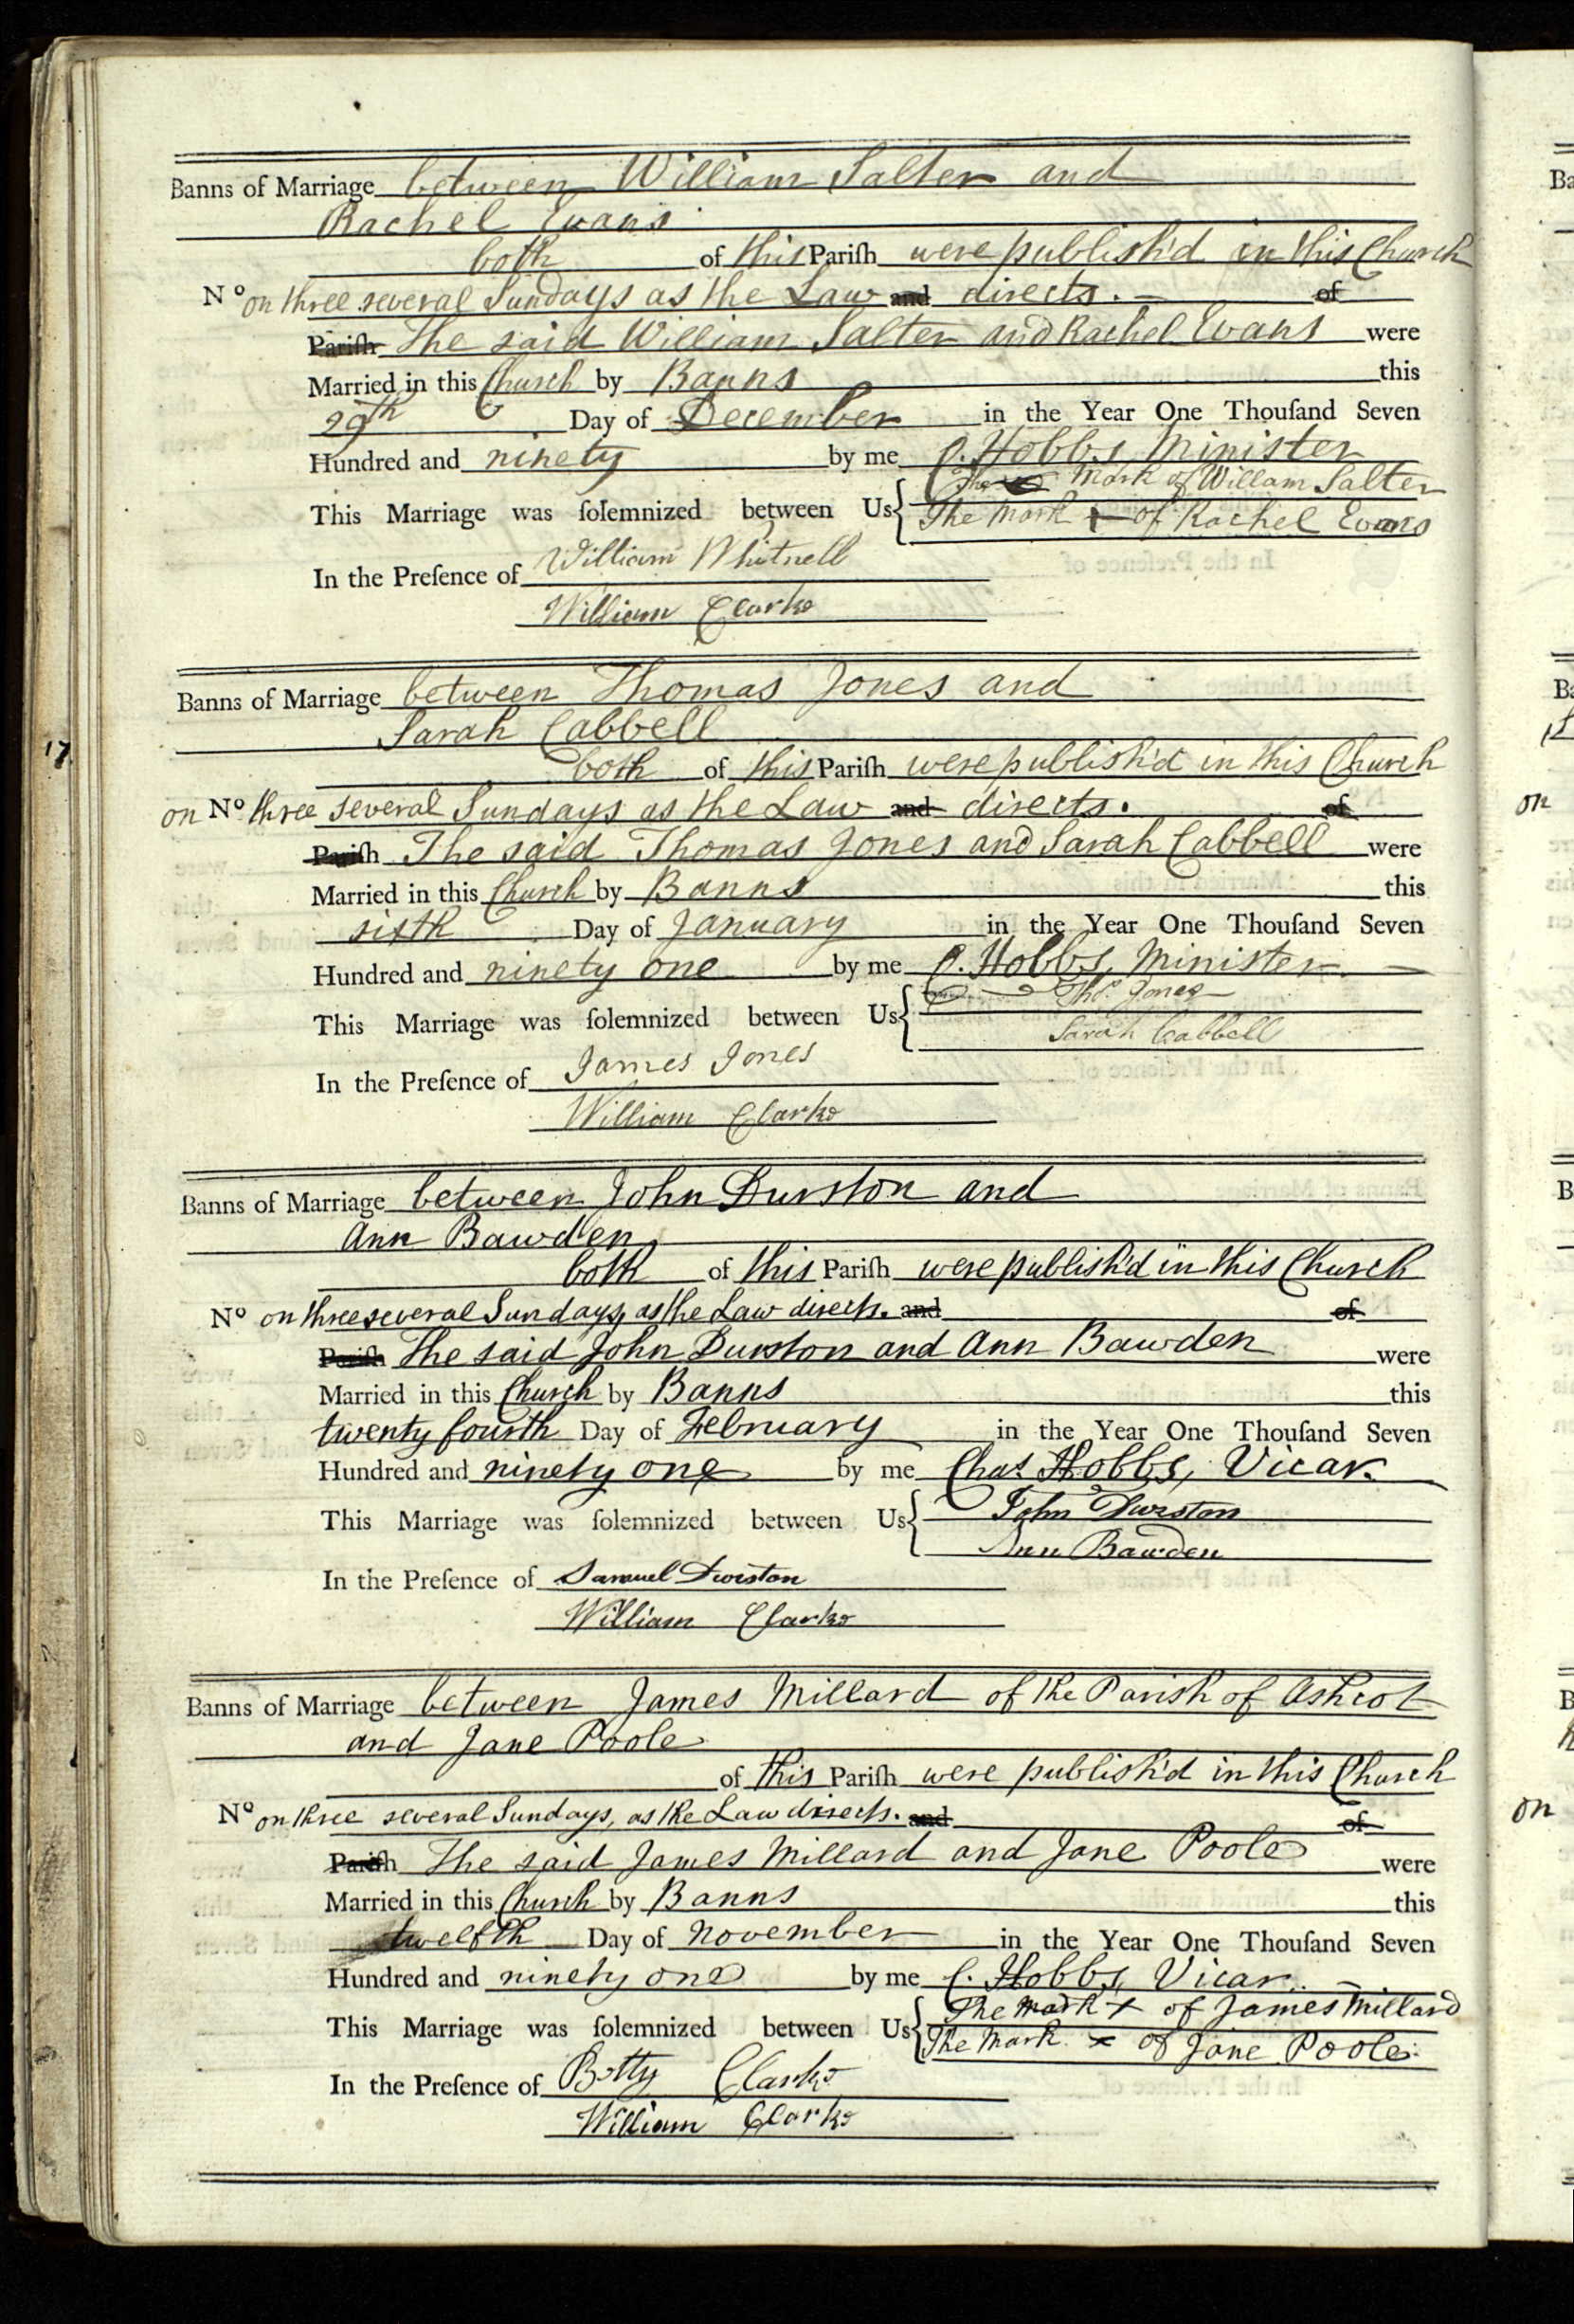 Banns of Marriage between William Salter and
Rachel Evans
both of this Pariſh were publish'd in this Church
No on three several Sundays as the Law and directs. of
Pariſh The said William Salter and Rachel Evans were
Married in this Church by Banns this
29th Day of December in the Year One Thouſand Seven
Hundred and ninety by me C. Hobbs Minister
The mark of Willam Salter
This Marriage was ſolemnized between Us
The mark + of Rachel Evans
In the Preſence of William Whitnell
William Clarke
Banns of Marriage between Thomas Jones and
Sarah Cabbell
17
both of this Pariſh were publish'd in this Church
on No three several Sundays as the Law and directs. of
on
Pariſh The said Thomas Jones and Sarah Cabbell were
Married in this Church by Banns this
sixth Day of January in the Year One Thouſand Seven
Hundred and ninety one by me C. Hobbs, Minister
Thos. Jones
This Marriage was ſolemnized between Us
Sarah Cabbell
In the Preſence of James Jones
William Clarke
Banns of Marriage between John Durston and
Ann Bawden
both of this Pariſh were publish'd in this Church
No on three several Sundays, as the Law directs. and of
Pariſh The said John Durston and Ann Bawden were
Married in this Church by Banns this
twenty fourth Day of February in the Year One Thouſand Seven
Hundred and ninety one by me Chas. Hobbs, Vicar
John Durston
This Marriage was ſolemnized between Us
Ann Bawden
In the Preſence of Samuel Durston
William Clarke
Banns of Marriage between James Millard of the Parish of Ashcot
and Jane Poole
of this Pariſh were publish'd in this Church
No on three several Sundays, as the Law directs. and of
on
Pariſh The said James Millard and Jane Poole were
Married in this Church by Banns this
twelfth Day of November in the Year One Thouſand Seven
Hundred and ninety one by me C. Hobbs, Vicar.
The mark + of James Millard
This Marriage was ſolemnized between Us
The Mark x of Jane Poole
In the Preſence of Betty Clarke
William Clarke